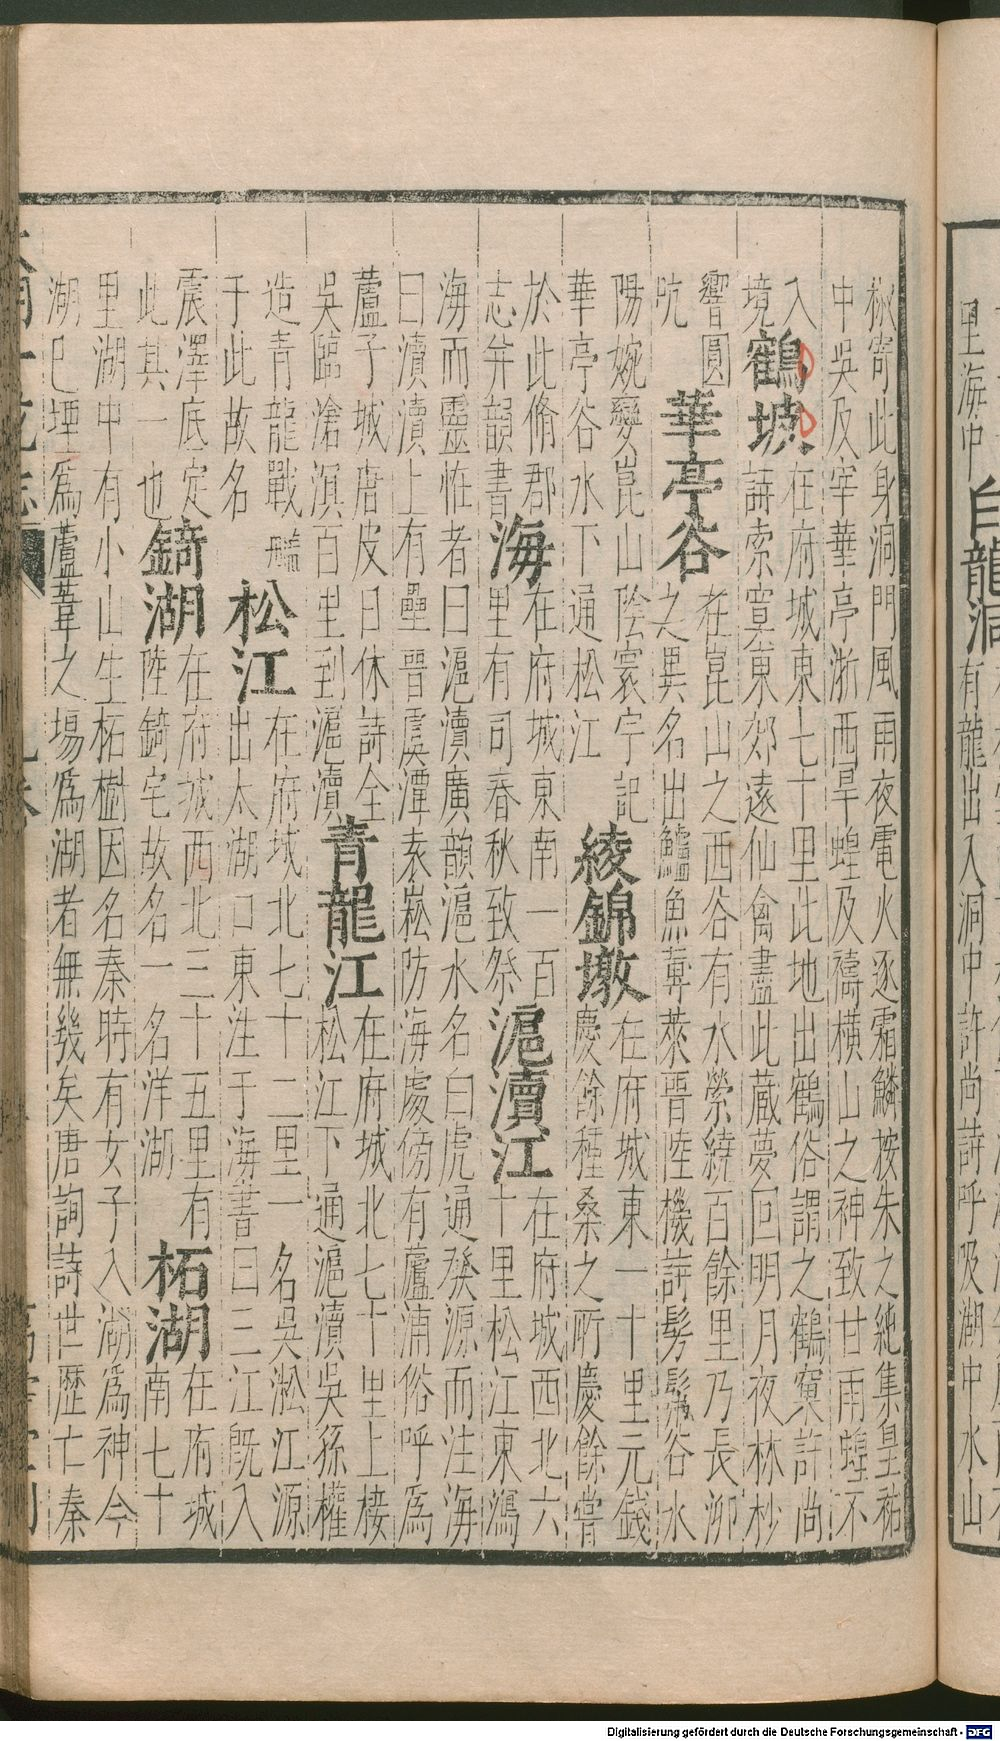 里海中
白龍洞
有龍出入洞中許尚詩呼吸湖中水山
椒寄此身洞門風雨夜電火逐霜鱗按朱之純集皇祐
中吳及宰華亭浙西旱蝗及禱橫山之神致甘雨蝗不
入
境
鶴坡
在府城東七十里此地出鶴俗謂之鶴窠許尚
詩索寞東郊遠仙禽盡此蔵夢回明月夜林杪
響圓
吭
華亭谷
在崑山之西谷有水縈繞百餘里乃長泖
之異名出鱸魚蓴菜晋陸機詩髣髴谷水
陽婉孌崑山陰寰宇記
華亭谷水下通松江
綾錦墩
在府城東一十里元錢
慶餘種桑之所慶餘嘗
於此脩郡
志弁韻書
海
在府城東南一百
里有司春秋致祭
滬瀆江
在府城西北六
十里松江東瀉
海而靈恠者曰滬瀆廣韻滬水名白虎通發源而注海
曰瀆瀆上有壘晋虞潭袁崧防海處傍有蘆浦俗呼爲
蘆子城唐皮日休詩全
吳臨滄溟百里到滬瀆
青龍江
在府城北七十里上接
松江下通滬瀆吳孫權
造青龍戰艦
于此故名
松江
在府城北七十二里一名吳淞江源
出太湖口東注于海書曰三江既入
震澤底定
此其一也
錡湖
在府城西北三十五里有
陸錡宅故名一名洋湖
柘湖
在府城
南七十
里湖中有小山生柘樹因名秦時有女子入湖爲神今
湖已堙爲蘆葦之場爲湖者無幾矣唐詢詩世歴亡秦
Digitalisierung gefördert durch die Deutsche Forschungsgemeinschaft - DFG